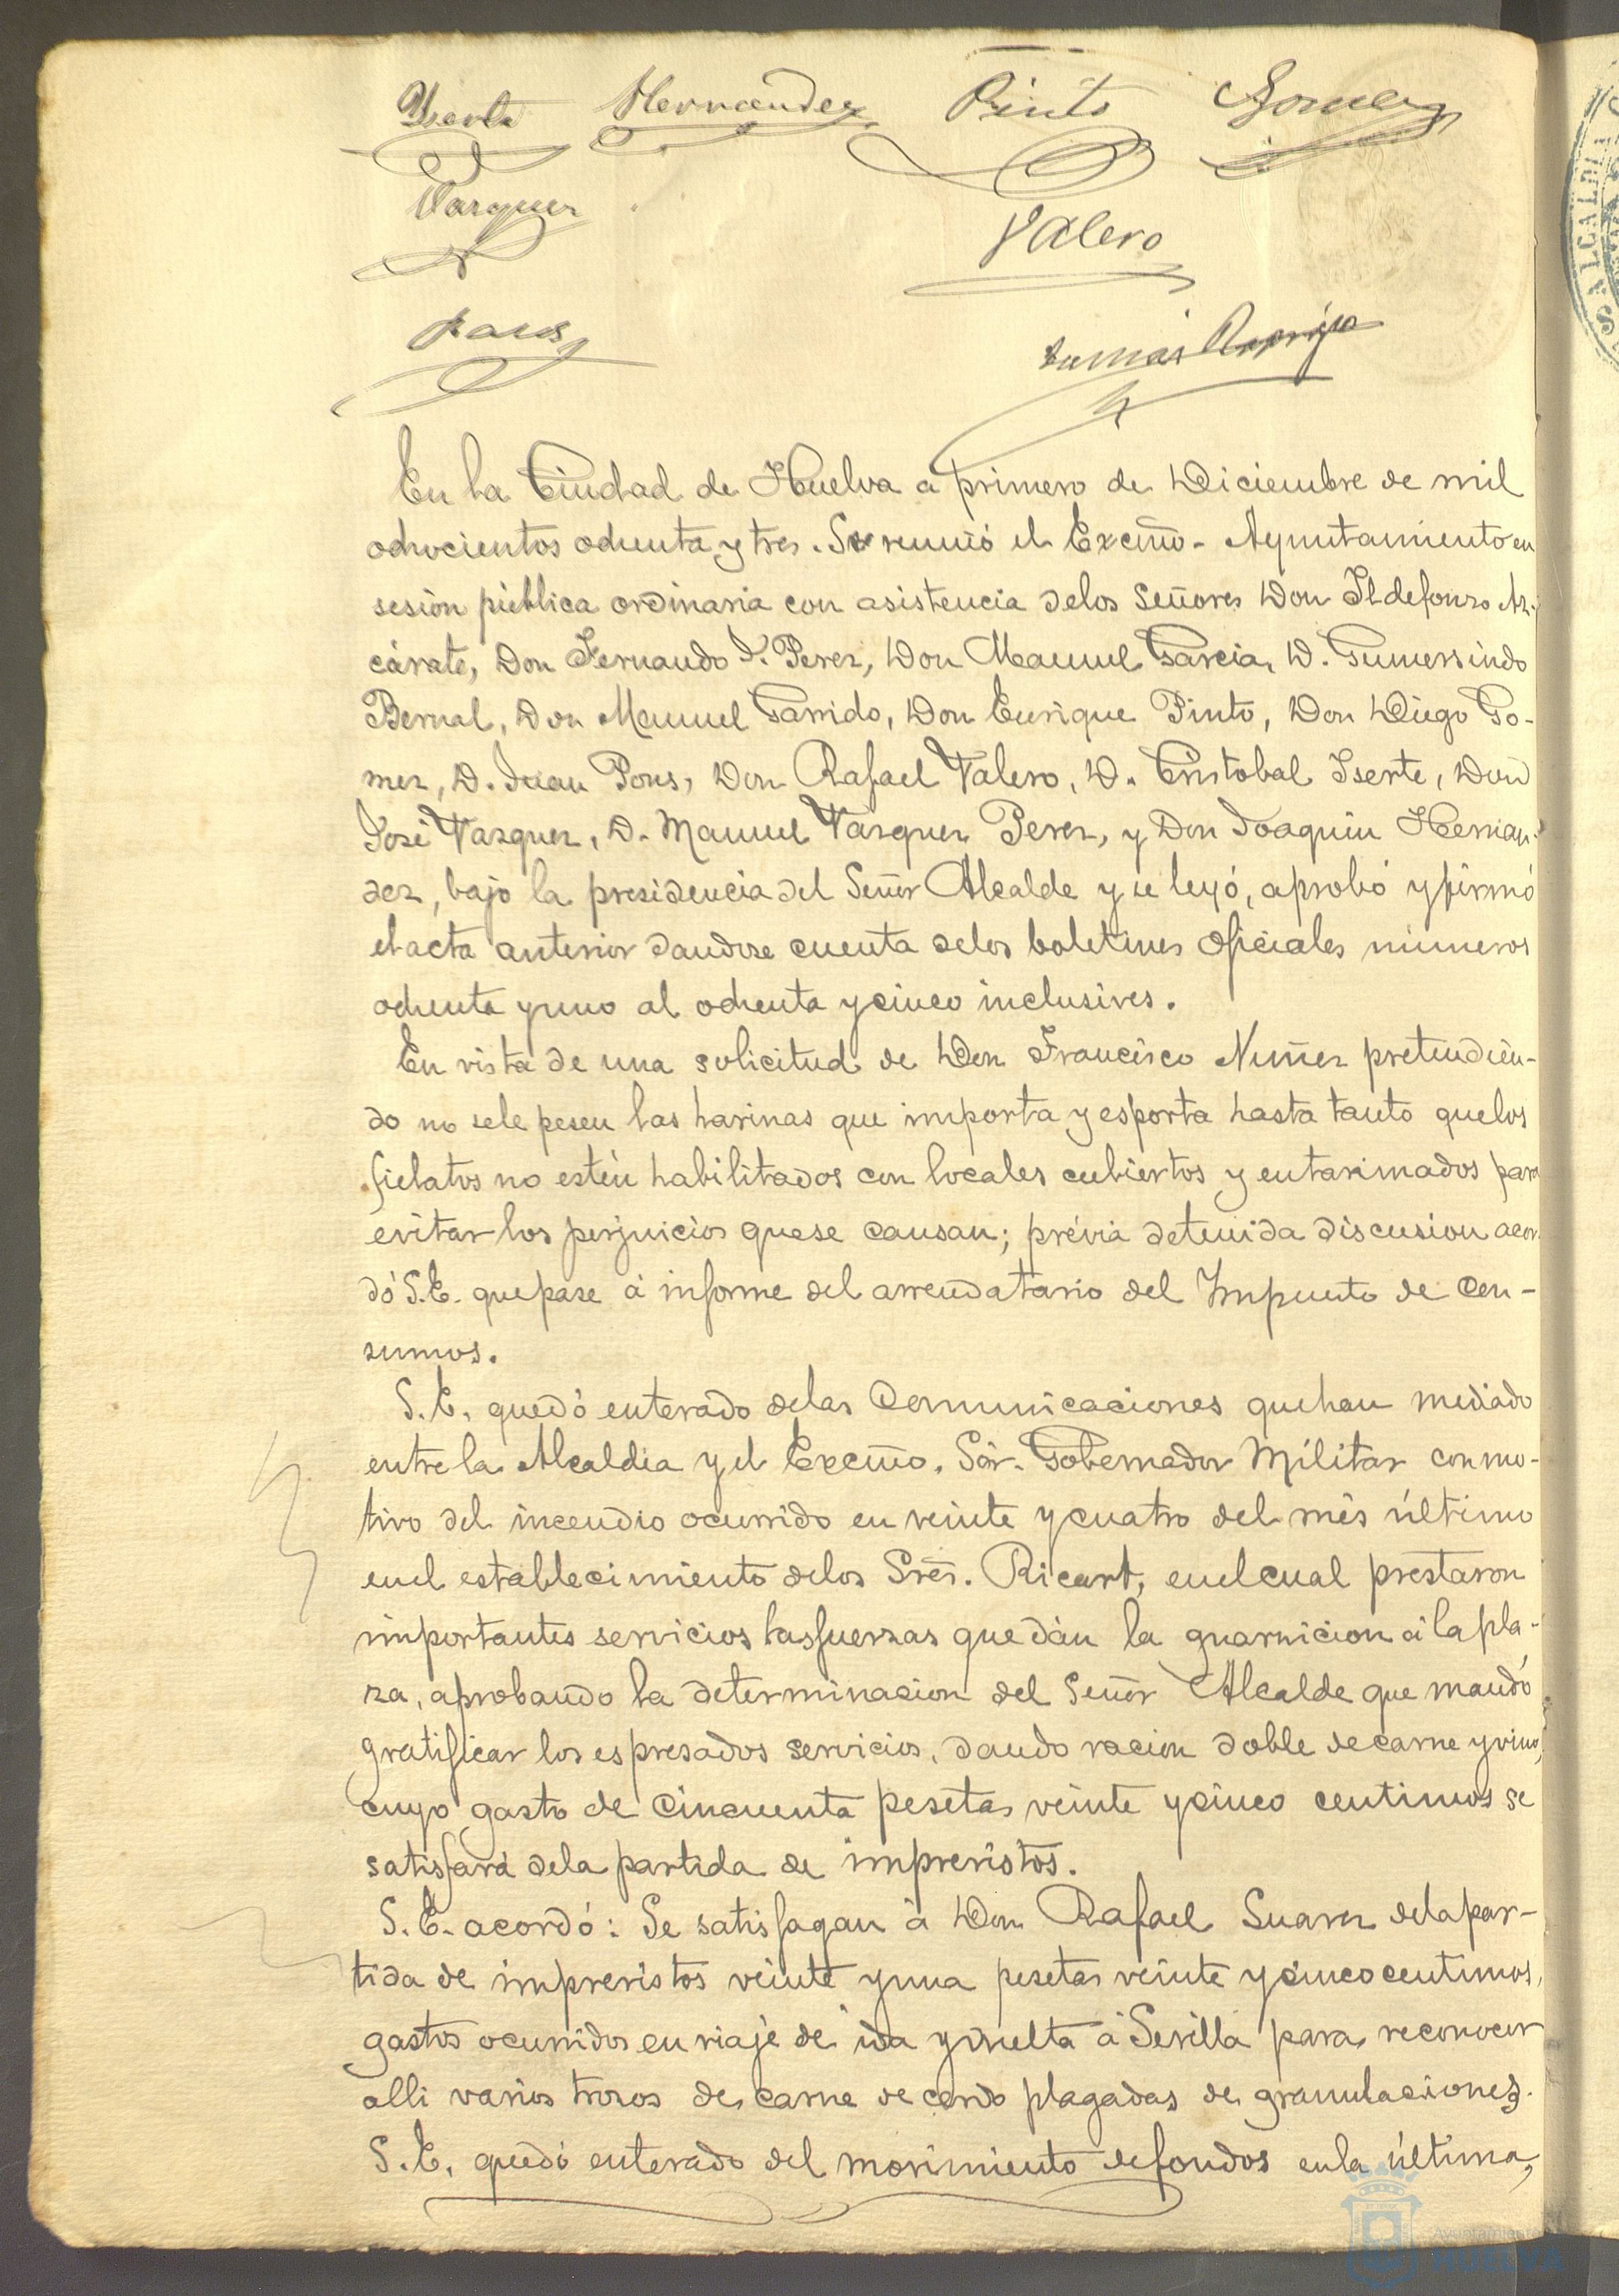 Iserte Hernández Pinto Gomez
Vazquez
Valero
Pons
En la Ciudad de Huelva a primero de Diciembre de mil
ochocientos ochenta y tres. Se reunió el Excmo. Ayuntamiento en
sesión pública ordinaria con asistencia delos Señores Don Ildefonzo Az-
cárate, Don Fernando P. Perez, Don Manuel Garcia, D. Gumersindo
Bernal, Don Manuel Garrido, Don Enrique Pinto, Don Diego Go-
mez, D. Juan Pons, Don Rafael Valero, D. Cristobal Iserte, Don
José Vazquez, D. Manuel Vazquez Perez, y Don Joaquin Hernan-
dez, bajo la presidencia del Señor Alcalde y se leyó, aprobó y firmó
el acta anterior dandose cuenta delos boletines oficiales números
ochenta y uno al ochenta y cinco inclusives.
En vista de una solicitud de Don Francisco Nuñez pretendien-
do no sele pesen las harinas que importa y esporta hasta tanto quelos
fielatos no estén habilitados con locales cubiertos y entarimados para
evitar los perjuicios quese causan; prévia detenida discusion acor-
dó S.E. quepase á informe del arrendatario del Impuesto de Con-
sumos.
S.E. quedó enterado delas Comunicaciones quehan mediado
entrela Alcaldia y el Excmo. Sór. Gobernador Militar con mo-
tivo del incendio ocurrido en veinte y cuatro del més último
enel establecimiento delos Sres. Ricart, enelcual prestaron
importantes servicios lasfuerzas que dán la guarnicion á la pla-
za, aprobando la determinacion del Señor Alcalde que mandó
gratificar los espresados servicios, dando racion doble de carne y vino,
cuyo gasto de cincuenta pesetas veinte y cinco centimos se
satisfará dela partida de imprevistos.
S.E. acordó: Se satisfagan á Don Rafael Suarez delapar-
tida de imprevistos veinte y una pesetas veinte y cinco centimos,
gastos ocurridos en viaje de ida y vuelta á Sevilla para reconocer
alli varios trozos de carne de cerdo plagadas de granulaciones.
S.E. quedó enterado del movimiento defondos enla última
ALCALDIA
Ayuntamiento
HUELVA